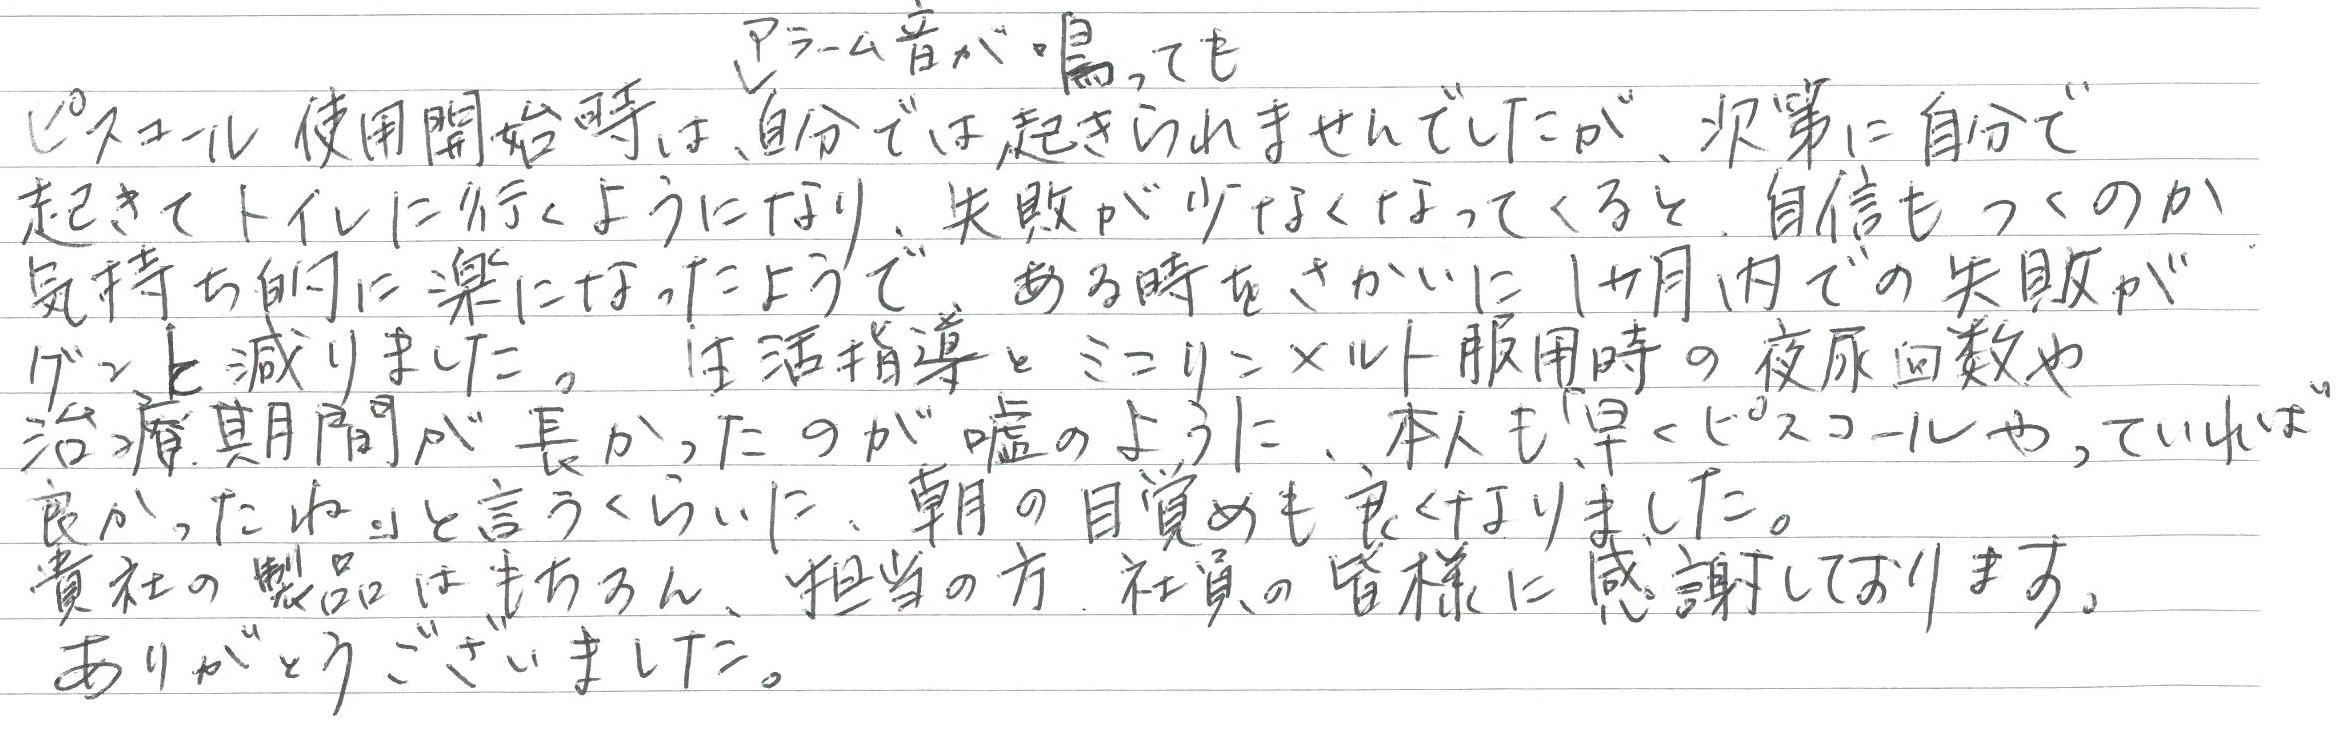 アラーム音が鳴っても
ピスコール使用開始時は、自分では起きられませんでしたが、次第に自分で
起きてトイレに行くようになり、失敗が少なくなってくると、自信もつくのか
気持ち的に楽になったようで、ある時をさかいに1ヶ月内での失敗が
グンと減りました。生活指導とミニリンメルト服用時の夜尿回数や
治療期間が長かったのが嘘のように、本人も「早くピスコールやっていれば
良かったね。」と言うくらいに、朝の目覚めも良くなりました。
貴社の製品はもちろん、担当の方、社員の皆様に感謝しております。
ありがとうございました。